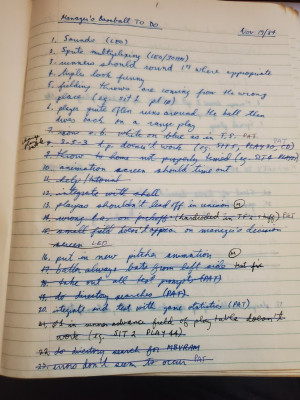 1
Manager's Baseball TO DO
Nov 17/84
1. Sounds (LEO)
2. Sprite multiplexing (LEO/JOHN)
3. runners should round 1st where appropriate
4. triples look funny
5. fielding throws are coming from the wrong
place (eg. SIT 1 pl 10)
6. player quite often runs around the ball then
dives back on a range play
7. show a.b. white on blue as in T.S. PAT
8. 2-5-3 d.p. doesn't work
9. throw to home not properly timed (eg. SIT 2
10. animation screen should time out
11. help/tutorial
12. integrate with shell
13. players shouldn't lead off in unison
14. wrong on pickoffs PAT
15. small field doesn't appear on manager's decision
screen LEO
16. put in new pitcher animation
17. batter always bats from left side
18. take out all text (PAT)
19. do directory searches (PAT)
20. integrate and test with game statistics (PAT)
21. advance field of play table doesn't
work (eg SIT 2 PLAY 44)
22. do directory search for
23. errors don't seem to occur PAT